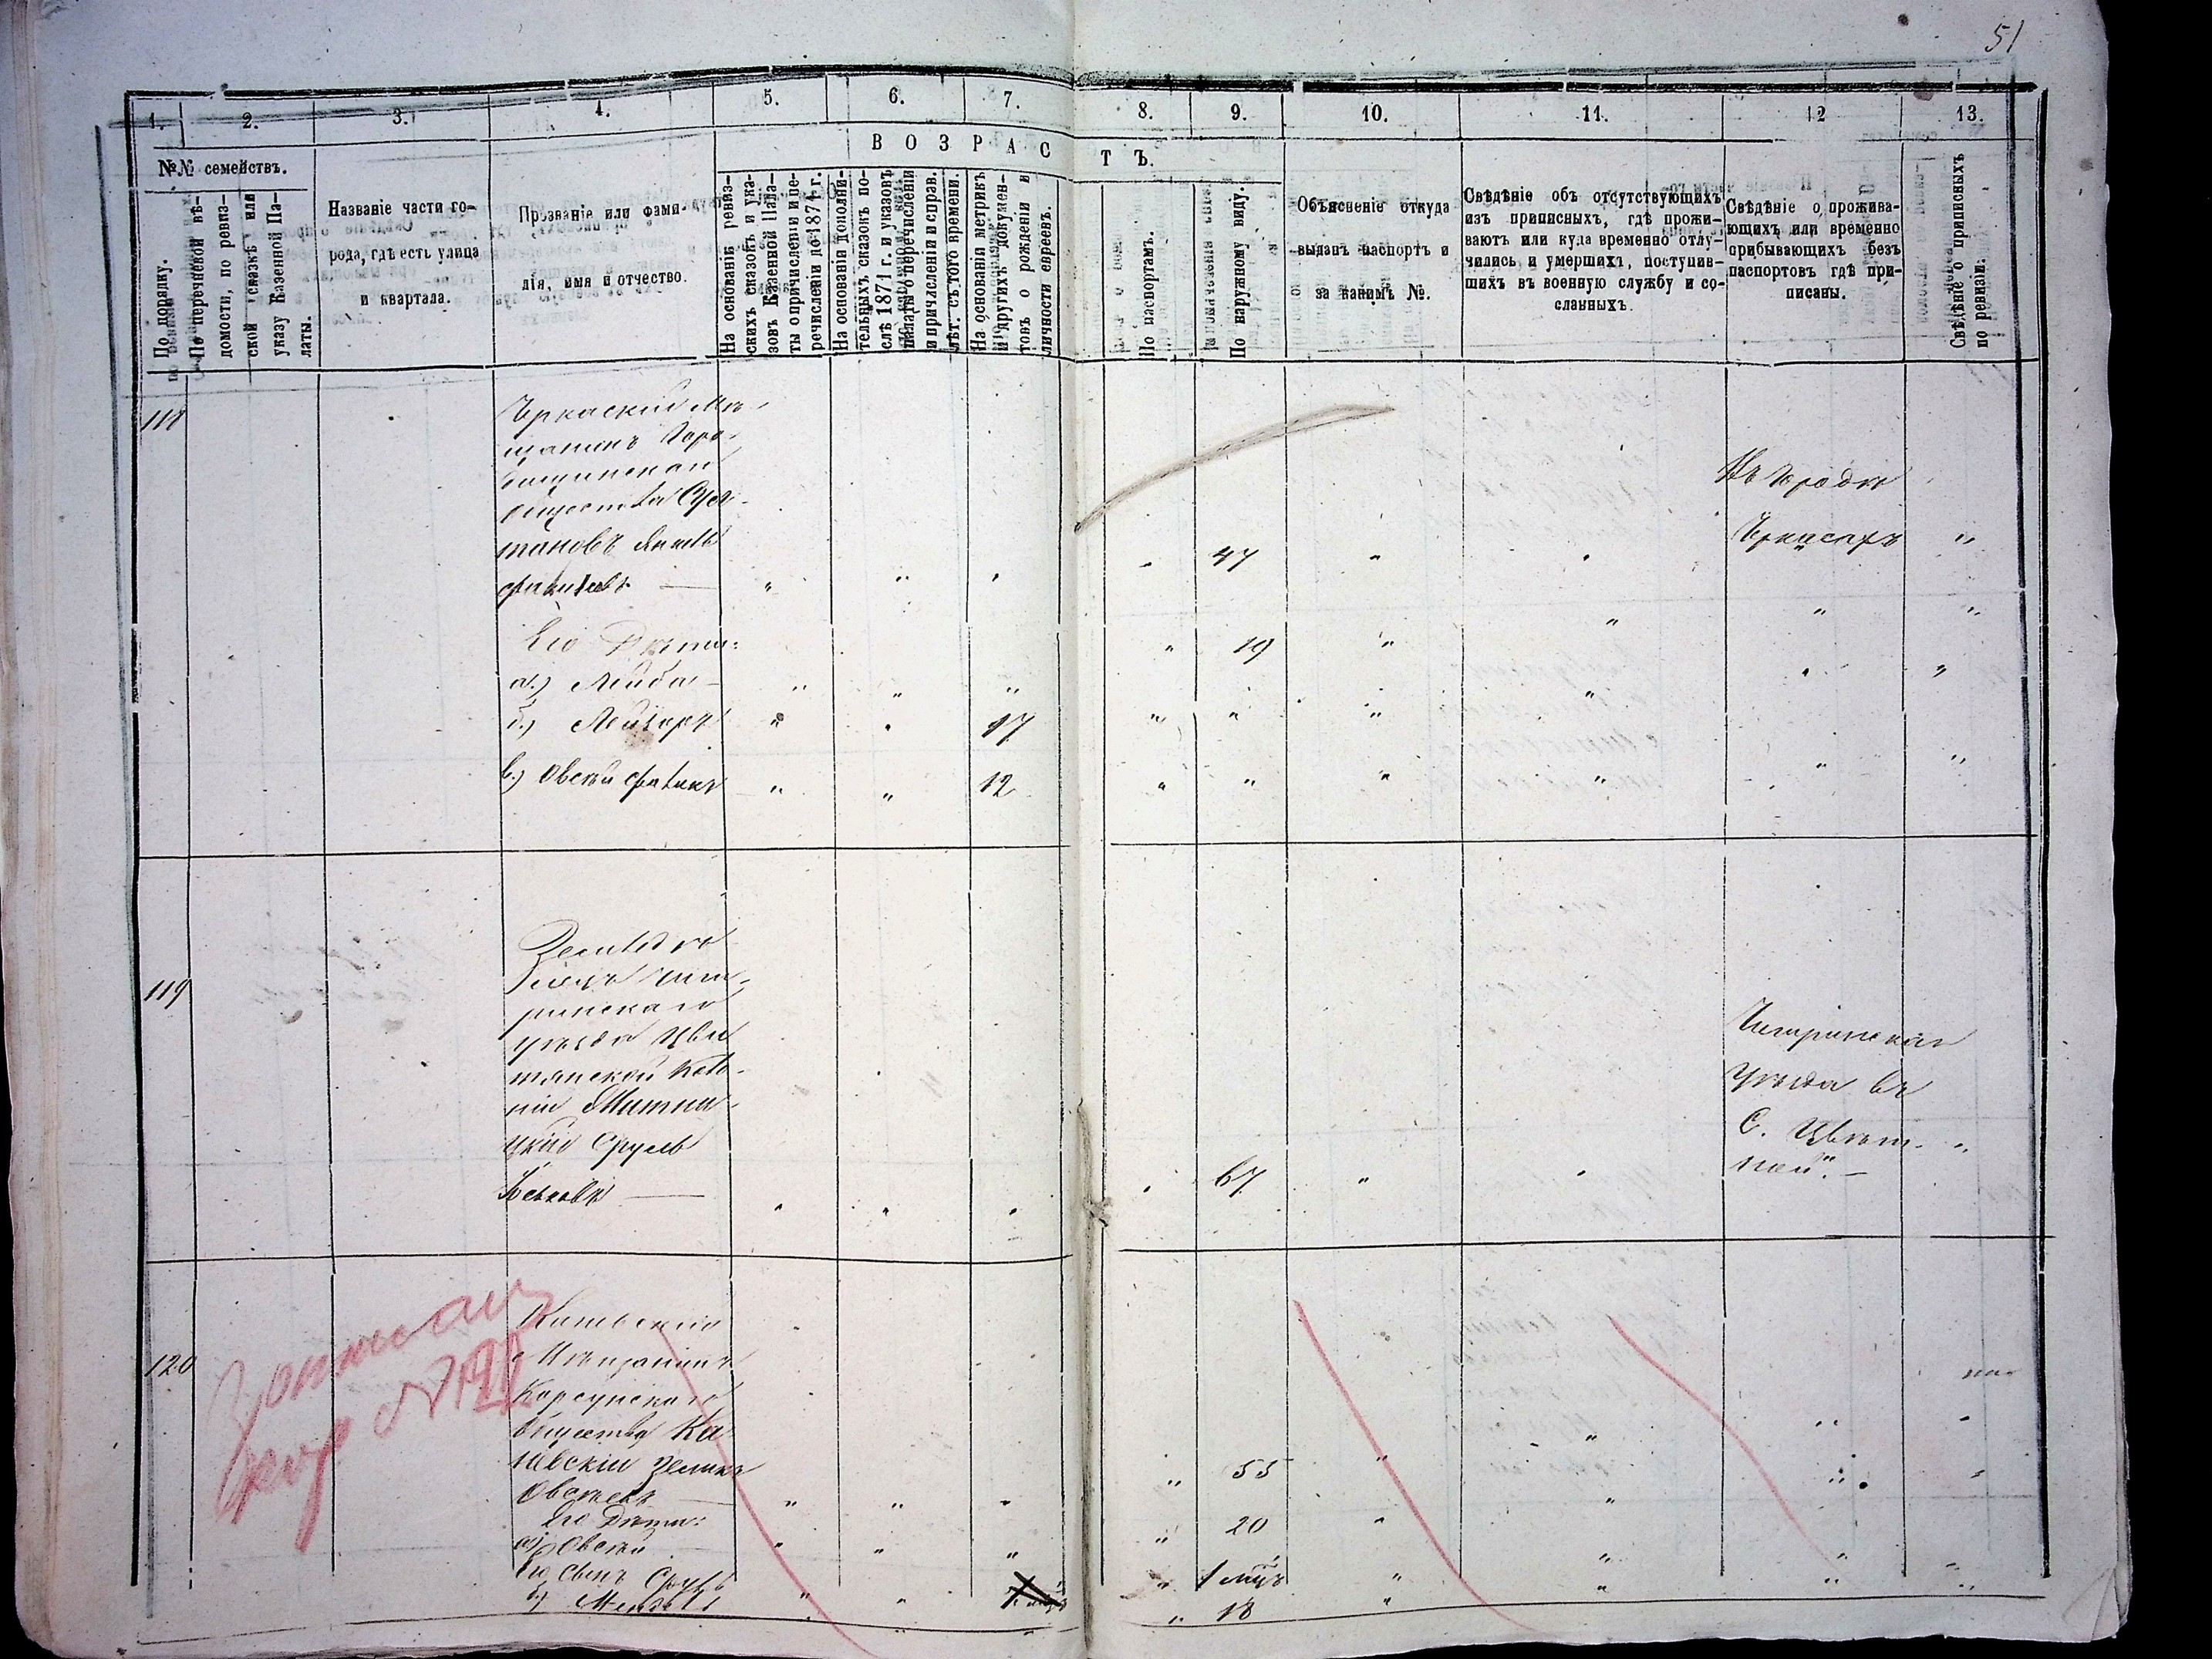 51
1.
2.
3.
4.
5.
6.
7.
8.
9.
10.
11.
12
13.
№№ семействъ.
ВОЗРАСТЪ.
По порядку.
По перечневой вѣ-
домости, по ревиз-
ской сказкѣ или
указу Казенной Па-
латы.
Названіе части го-
рода, гдѣ есть улица
и квартала.
Прозваніе или фами-
лія, имя и отчество.
На основаніи ревиз-
скихъ сказокъ и ука-
зовъ Казенной Пала-
ты о причисленіи и пе-
речисленіи до 1874 г.
На основаніи дополни-
тельныхъ сказокъ по-
слѣ 1871 г. и указовъ
палаты о перечисленіи
и причисленіи и справ.
лѣт. съ того времени.
На основаніи метрикъ
и другихъ докумен-
товъ о рожденіи и
личности евреевъ.
По паспортамъ.
По наружному виду.
Объясненіе откуда
выданъ паспортъ и
за какимъ №.
Свѣдѣніе объ отсутствующихъ
изъ приписныхъ, гдѣ прожи-
ваютъ или куда временно отлу-
чились и умершихъ, поступив-
шихъ въ военную службу и со-
сланныхъ.
Свѣдѣніе о прожива-
ющихъ или временно
прибывающихъ безъ
паспортовъ гдѣ при-
писаны.
Свѣдѣніе о приписныхъ
по ревизіи.
118
Черкаскій Мѣ-
щанинъ Горо-
дищинскаго
общества
Его Дѣти:
а.) Лейба
б.) Лейзоръ
в.) Овсѣй
47
19
17
12
Въ Городѣ
Черкасахъ
119
Земледѣ
лецъ Чиги
ринскаго
уѣзда Цвѣ
тянской Коло-
ніи Житни
цкій Сруль
Іоськовъ
67
Чигиринскаго
Уѣзда въ
С. Цвѣт-
ной
120
Каневскій
Мѣщанинъ
Корсунскаго
Общества Ка
невскій Зельикъ
Овсѣевъ
Его Дѣти:
а) Овсѣй
его сынъ Сруль
б)
55
20
1 мѣц
18